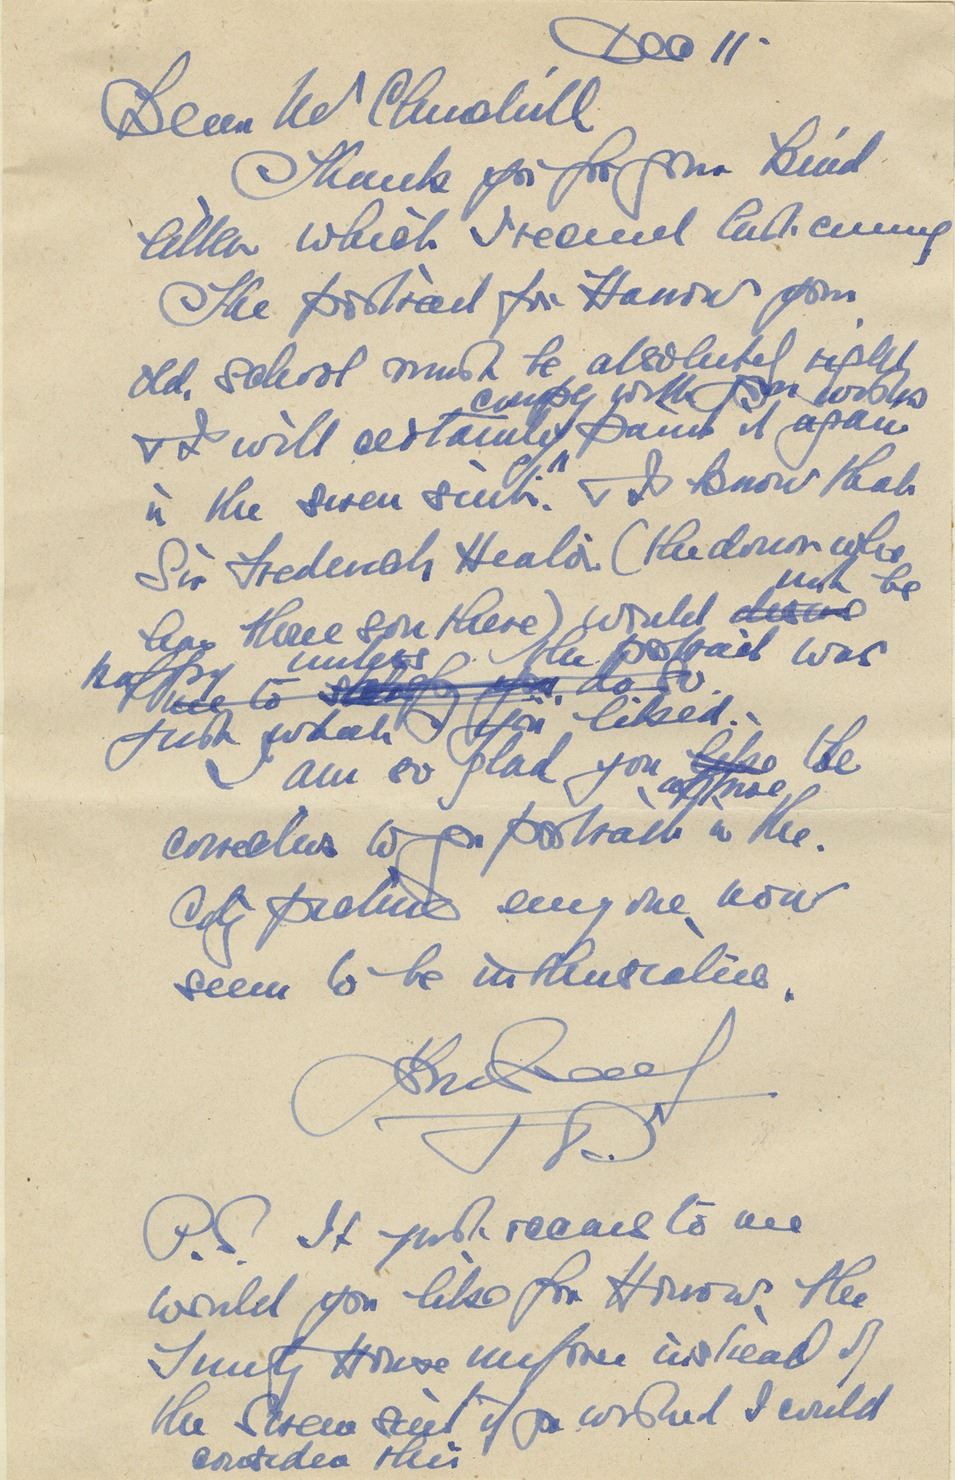 Dec 11.
Dear Mr Churchill
Thank you for your kind
letter which I received this evening
The portrait for Harrow your
old school must be absolutely right
comply with your wishes
& I will certainly paint it again
in the siren suit. & I know that
Sir Frederick (the donor who
not be
has three son there) would
happy unless the portrait was
me to you do so
just what you liked.
I am so glad you like the
approve
corrections to your portrait in the
City picture everyone now
seem to be enthusiastic.
P.S. It just occurs to me
would you like for Harrow the
Trinity House uniform instead of
the Siren suit if you wished I could
consider this